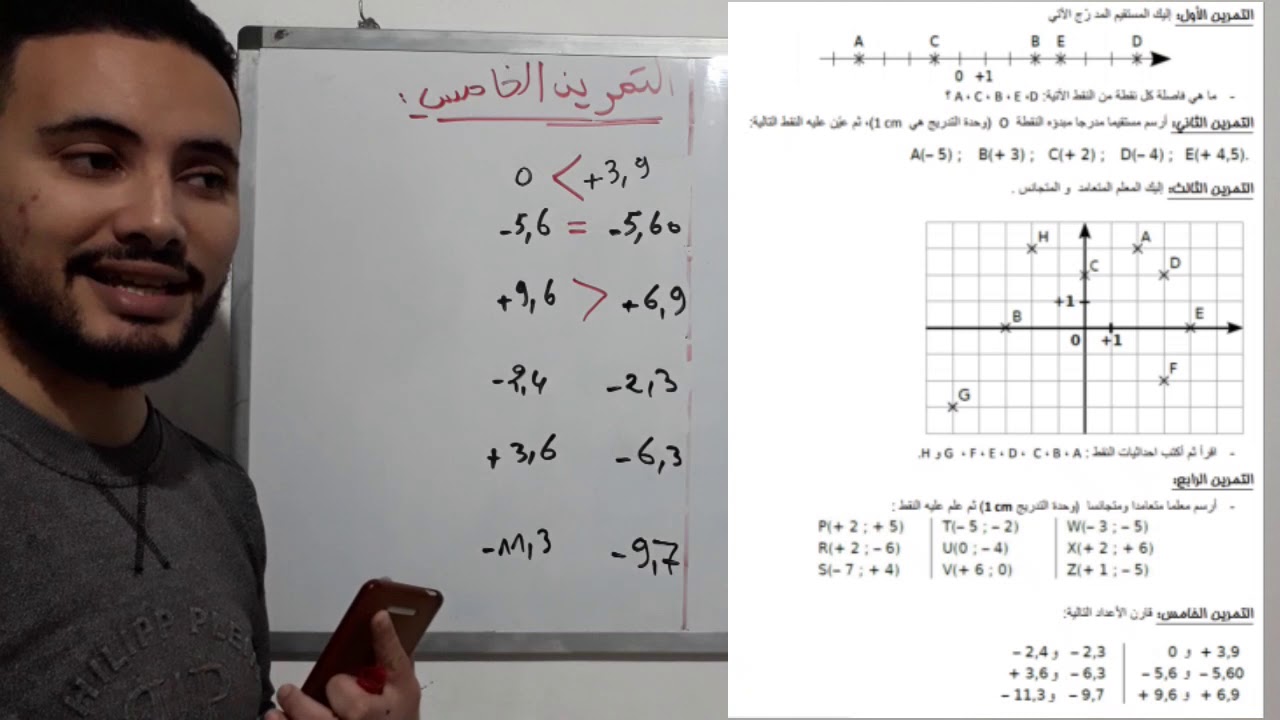 التمرين الخامس :
0 < +3,9
-5,6 = -5,60
+9,6 > +6,9
-2,4 -2,3
+3,6 -6,3
-11,3 -9,7
PHILIPP PLEIN
التمرين الأول: إليك المستقيم المد رّج الآتي
A C B E D
0 +1
- ما هي فاصلة كل نقطة من النقط الآتية: A ، C ، B ، E ،D ؟
التمرين الثاني: أرسم مستقيما مدرجا مبدؤه النقطة O (وحدة التدريج هي 1 cm)، ثم عيّن عليه النقط التالية:
A(– 5) ; B(+ 3) ; C(+ 2) ; D(– 4) ; E(+ 4,5).
التمرين الثالث: إليك المعلم المتعامد و المتجانس .
H A
C D
+1
B E
0 +1
F
G
- اقرأ ثم أكتب احداثيات النقط : G ، F ، E ، D ، C ، B ، A و H.
التمرين الرابع:
- أرسم معلما متعامدا ومتجانسا (وحدة التدريج 1 cm) ثم علم عليه النقط :
P(+ 2 ; + 5) T(– 5 ; – 2) W(– 3 ; – 5)
R(+ 2 ; – 6) U(0 ; – 4) X(+ 2 ; + 6)
S(– 7 ; + 4) V(+ 6 ; 0) Z(+ 1 ; – 5)
التمرين الخامس: قارن الأعداد التالية:
– 2,4 و – 2,3 0 و + 3,9
+ 3,6 و – 6,3 – 5,6 و – 5,60
– 11,3 و – 9,7 + 9,6 و + 6,9